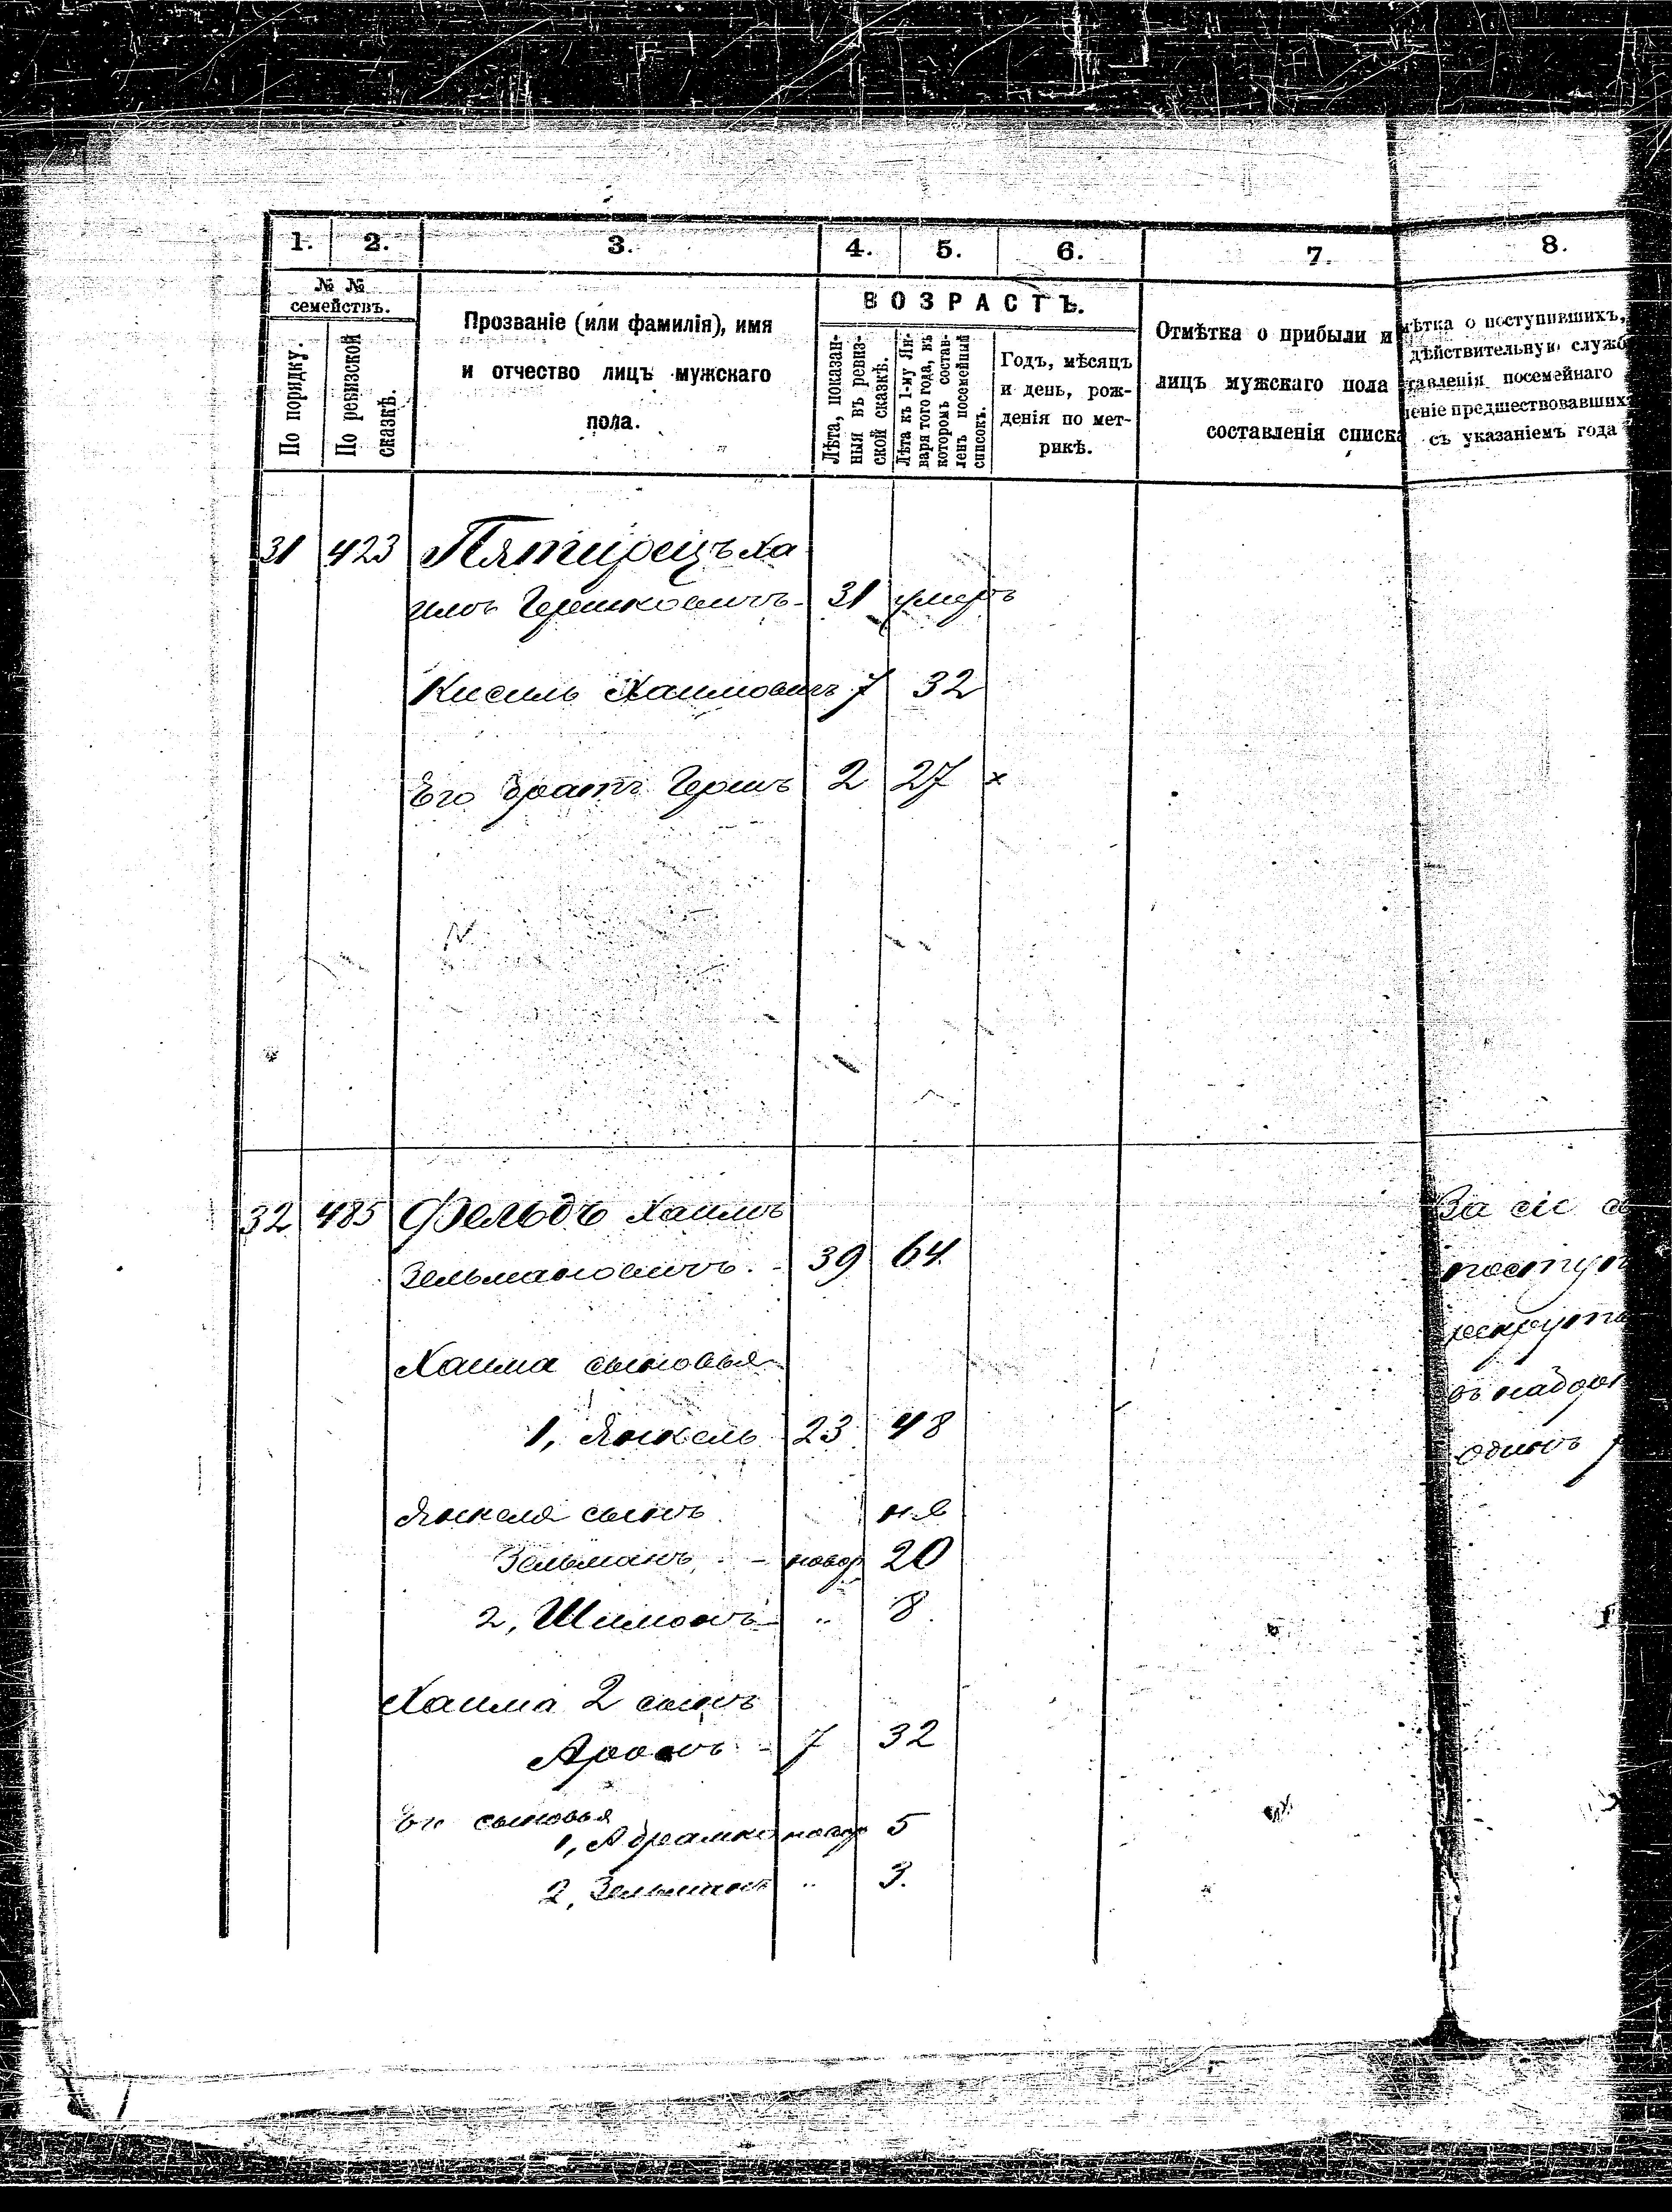 1. 2. 3. 4. 5. 6. 7. 8.
№ №
семействъ.
По порядку.
По ревизской
сказкѣ.
Прозваніе (или фамилія), имя
и отчество лицъ мужскаго
пола.
ВОЗРАСТЪ.
Лѣта, показан-
ныя въ ревиз-
ской сказкѣ.
Лѣта къ 1-му Ян-
варя того года, въ
которомъ состав-
ленъ посемейный
списокъ.
Годъ, мѣсяцъ
и день, рож-
денія по мет-
рикѣ.
Отмѣтка о прибыли и
лицъ мужскаго пола
составленія списка
мѣтка о поступившихъ,
дѣйствительную служб
тавленія посемейнаго
леніе предшествовавших
съ указаніемъ года
31 423 Пятирецъ Ха
имъ Гершковичъ - 31 умеръ
Кисиль Хаимовичъ 7 32
Его братъ Гершъ 2 27 х
32 485 Фельдъ Хаимъ
Зельмановичъ - 39 64
Хаима сыновья
1, Янкель 23 48
Янкеля сынъ н.я
Зельманъ - новор 20
2, Шимонъ - " 8
Хаима 2 сынъ
Аронъ - 7 32
Его сыновья
1, Абрамко новор 5
2, Зельманъ " 3.
За сіе с
поступ
рекрутъ
одинъ